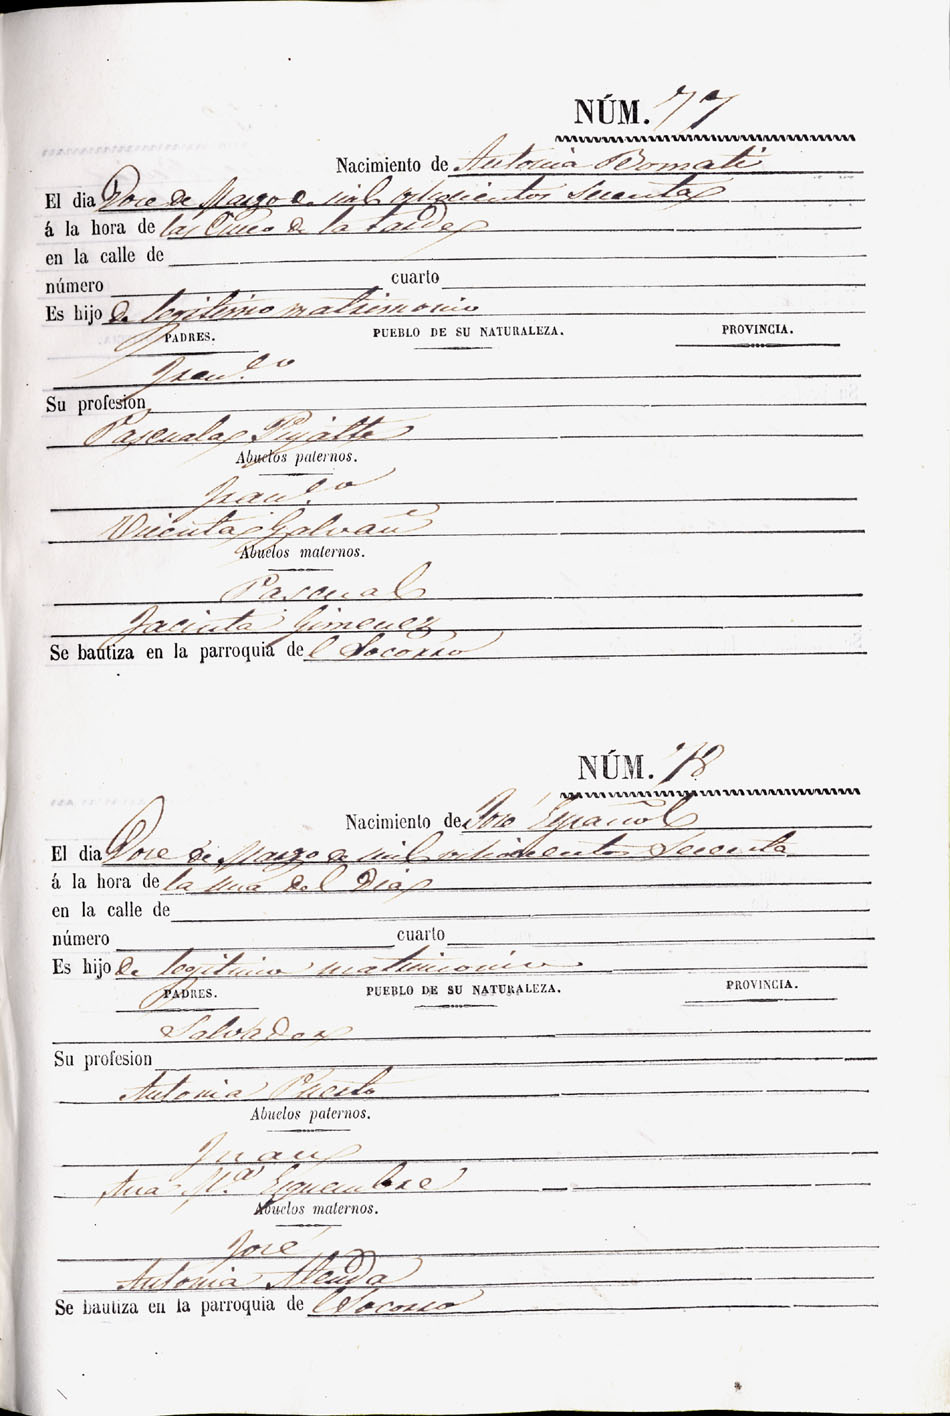 NÚM. 77
Nacimiento de Antonia Bomati
El dia Doce de Marzo de mil ochocientos Secenta
á la hora de las Cinco de la tarde
en la calle de
número cuarto
Es hijo de legitimo matrimonio
PADRES. PUEBLO DE SU NATURALEZA. PROVINCIA.
Fran.co
Su profesion
Pascuala Pujalte
Abuelos paternos.
Fran.co
Vicenta Galvañ
Abuelos maternos.
Pascual
Jacinta Gimenez
Se bautiza en la parroquia de l Socorro
NÚM. 78
Nacimiento de José Español
El dia Doce de Marzo de mil ochocientos Secenta
á la hora de la una del Dia
en la calle de
número cuarto
Es hijo de legitimo matrimonio
PADRES. PUEBLO DE SU NATURALEZA. PROVINCIA.
Salvador
Su profesion
Antonia Puerto
Abuelos paternos.
Juan
Ana M.a Esquembre
Abuelos maternos.
José
Antonia Alenda
Se bautiza en la parroquia de l Socorro